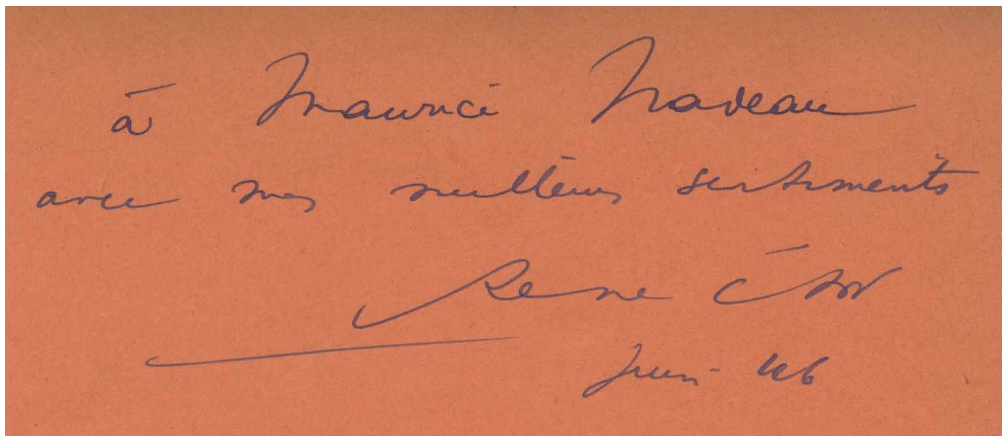 à Maurice Nadeau
avec mes meilleurs sentiments
René Char
juin 46